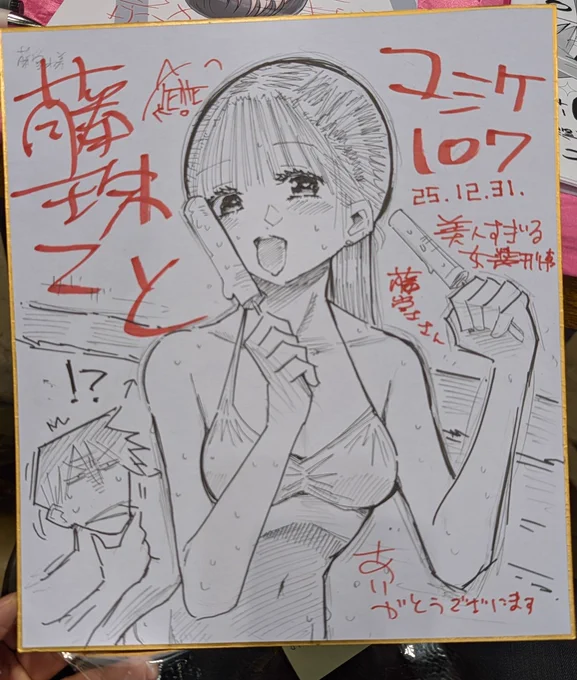 藤
珠
こと
コミケ
107
25.12.31.
美人すぎる
女装刑事
藤堂さん
!?
あり
がとうございます